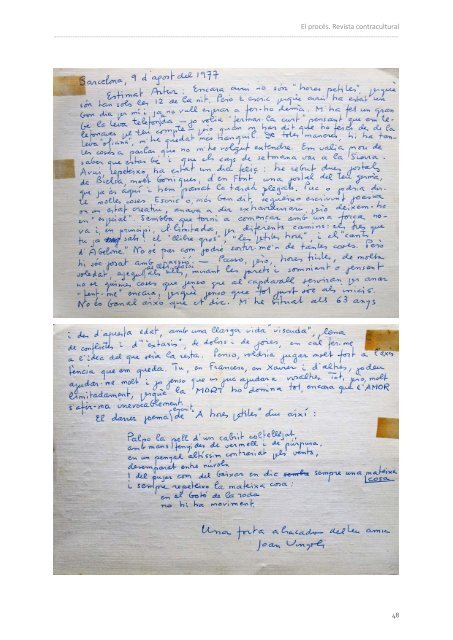 El procés. Revista contracultural
Barcelona, 9 d'agost del 1977
Estimat Antor: Encara avui no són "hores petites", perquè
són tan sols les 12 de la nit. Però t'escric perquè avui ha estat un
bon dia per mi i ja no vull esperar a fer-ho demà. M'ha fet un gran
bé la teva telefonada — jo volia "fer-la curt" pensant que em te-
lefonaves pel teu compte — però quan m'han dit que ho feies des de la
teva oficina, m'he quedat més tranquil. De tota manera, hi ha tan-
tes coses a parlar que no m'he volgut entendre. Em valia més de
saber que estàs bé i que els caps de setmana vas a la Sierra.
Avui, repeteixo, ha estat un dia feliç: he rebut dues postals
de Bièlia, molt boniques, d'en Font una postal del teu germà,
que ja és aquí i hem passat la tarda plegats. Puc o podria dir-
te moltes coses. Escric o, més ben dit, segueixo escrivint poesia
en un estat creatiu, anava a dir extraordinari, però deixem-ho
en "especial". Sembla que torni a començar amb una força no-
va i, en principi, il·limitada, per diferents camins: els tres que
tu ja saps: el "llibre gros", "les petites hores" i el "cant
d'Abelone". No sé pas com podré sortir-me'n de tantes coses. Però
hi sóc posat amb passió. — Passo, però, hores tristes, de molta
soledat, ajegut als llits, mirant les parets i somniant o pensant
no sé quines coses que penso que al capdavall serviran per anar
"fent-me" encara, perquè penso que tot just sóc als inicis.
No és banal això que et dic. M'he situat als 63 anys
i des d'aquesta edat, amb una llarga vida "viscuda", plena
de conflictes i d'"èxtasis", de dolors i de joies, em cal fer-me
a l'idea del que seria la resta. Penso, voldria jugar molt fort a l'exis-
tència que em queda. Tu, en Francesc, en Xavier i d'altres, podeu
ajudar-me molt i jo penso que us puc ajudar a vosaltres. Tot, però, molt
limitadament, perquè la MORT ho domina tot encara que l'AMOR
s'afirma inesborrablement.
El darrer poema escrit de "A hores petites" diu així:
Palpo la pell d'un cabrit coltellejat,
amb mans tenyides de vermell i de púrpura,
en un penjat altíssim contrariat pels vents,
desemparat entre núvols
i del pujar com del baixar en dic sembla sempre una mateixa
cosa
i sempre repeteixo la mateixa cosa:
en el botó de la roda
no hi ha moviment.
Una forta abraçada del teu amic
Joan Vinyoli
48